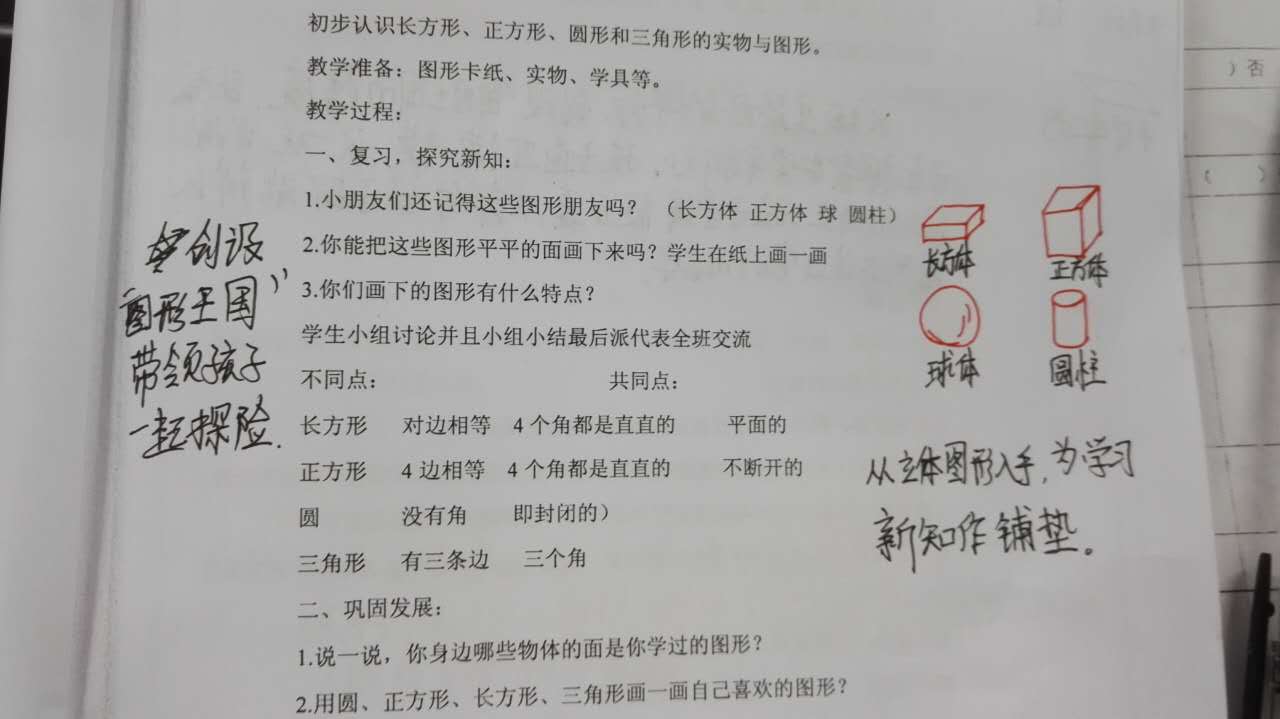 初步认识长方形、正方形、圆形和三角形的实物与图形。
教学准备：图形卡纸、实物、学具等。
教学过程：
一、复习，探究新知：
1.小朋友们还记得这些图形朋友吗？（长方体 正方体 球 圆柱）
2.你能把这些图形平平的面画下来吗？学生在纸上画一画
3.你们画下的图形有什么特点？
学生小组讨论并且小组小结最后派代表全班交流
不同点： 共同点：
长方形 对边相等 4 个角都是直直的 平面的
正方形 4 边相等 4 个角都是直直的 不断开的
圆 没有角 即封闭的）
三角形 有三条边 三个角
二、巩固发展：
1.说一说，你身边哪些物体的面是你学过的图形？
2.用圆、正方形、长方形、三角形画一画自己喜欢的图形？
创设
图形王国”
带领孩子
一起探险.
长方体 正方体
球体 圆柱
从立体图形入手，为学习
新知作铺垫。
）否
（ ）